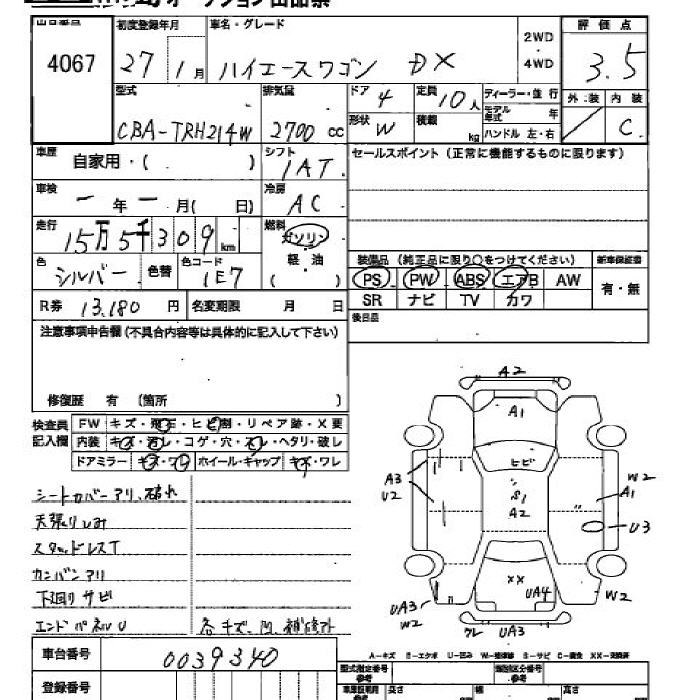 出品番号
4067
初度登録年月
27 / 1月
車名・グレード
ハイエースワゴン DX
2WD
・
4WD
評価点
3.5
型式
CBA-TRH214W
排気量
2700 cc
ドア 4
形状 W
定員 10人
積載 kg
ディーラー・並行
モデル年式 年
ハンドル 左・右
外装 内装
C
車歴
自家用・( )
シフト
IAT
セールスポイント (正常に機能するものに限ります)
車検
ー年ー月( 日)
冷房
AC
走行
15万5千309km
燃料
ガソリン
軽・油
色
シルバー
色替
色コード
1E7
装備品 (純正品に限り○をつけてください)
新車保証書
PS PW ABS エアB AW
SR ナビ TV カワ
有・無
R券 13,180 円
名変期限 月 日
後日品
注意事項申告欄(不具合内容等は具体的に記入して下さい)
修復歴 有 (箇所 )
検査員
記入欄
FW キズ・飛石・ヒビ割・リペア跡・X要
内装 キズ・汚レ・コゲ・穴・スレ・ヘタリ・破レ
ドアミラー キズ・ワレ ホイール・キャップ キズ・ワレ
シートカバーアリ、破れ
天張りしみ
スタッドレスT
カンバンアリ
下廻りサビ
エンドパネルU
各キズ、凹、補修アト
A2
A1
ヒビ
S1
A2
A3
U2
W2
A1
U3
XX
UA4
UA3
W2
W2
ワレ UA3
A-キズ E-エクボ U-凹み W-補修跡 S-サビ C-腐食 XX-交換済
車台番号
0039340
登録番号
型式指定番号
参考
類別区分番号
参考
車庫証明用
参考
長さ
cm
幅
高さ